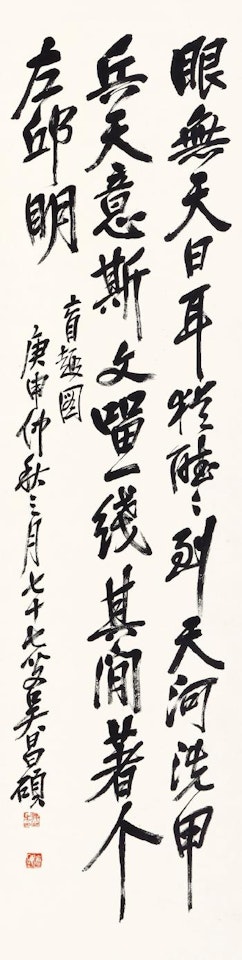 眼無天日耳猶聽〻到天河洗甲
兵天意斯文留一线其間著个
左邱明
盲趣图
庚申仲秋之月七十七叟吴昌碩